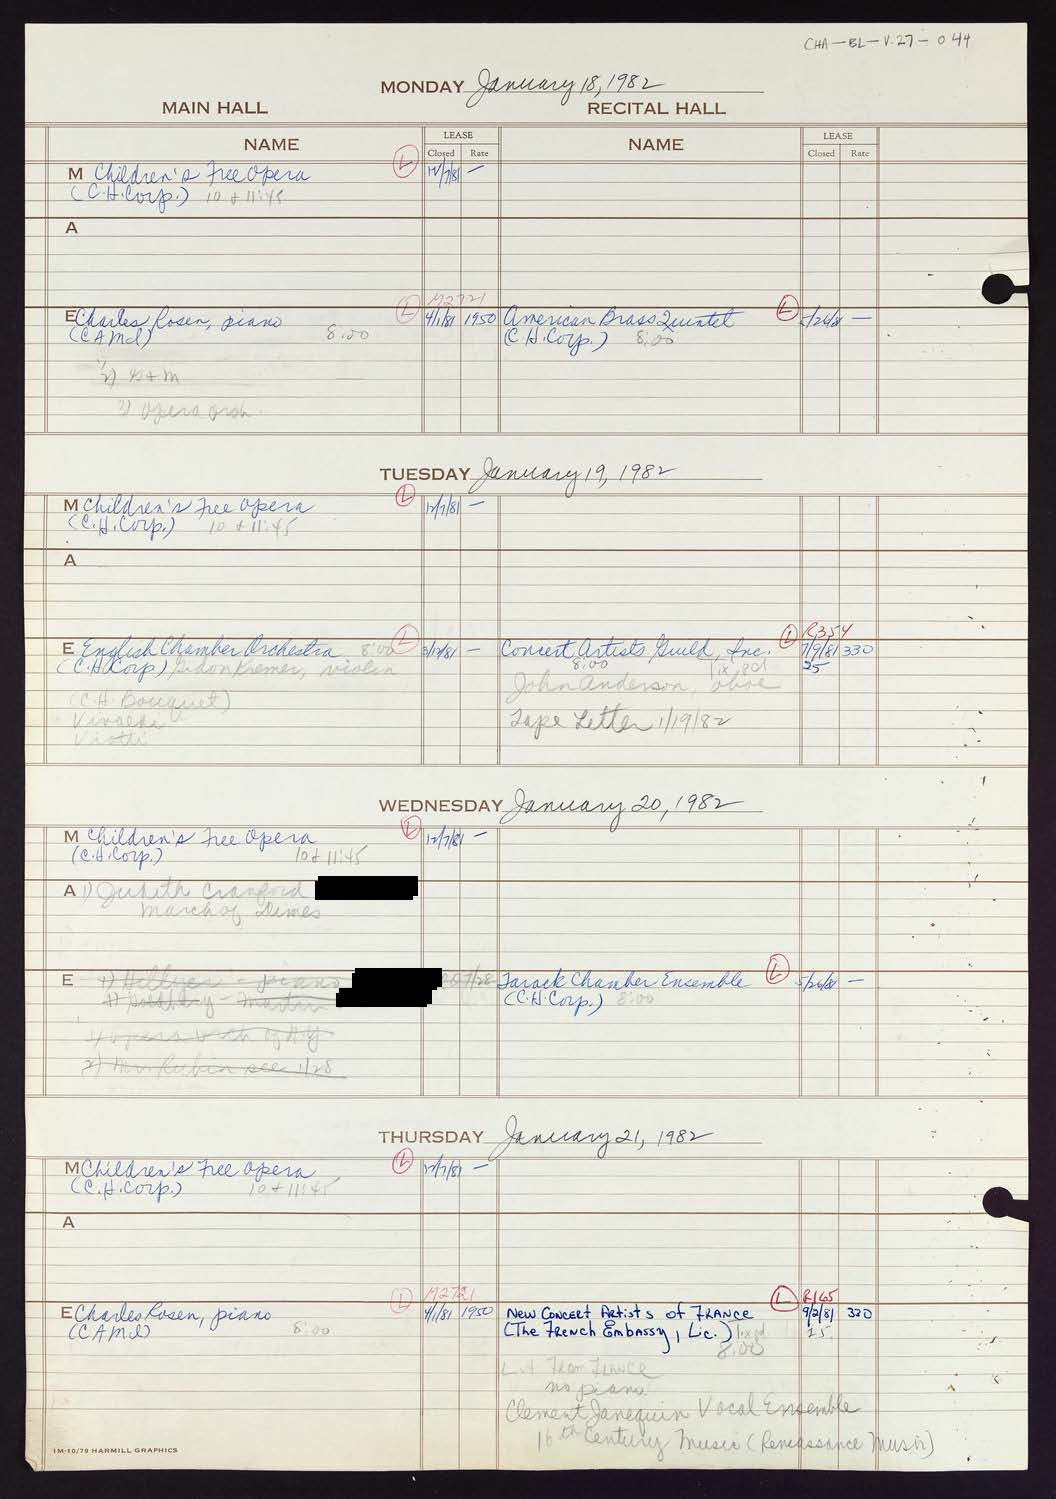 CHA-BL-V.27-044
MONDAY January 18, 1982
MAIN HALL
RECITAL HALL
NAME
LEASE
Closed
Rate
NAME
LEASE
Closed
Rate
M Children's Free Opera
L
12/7/81 —
(C.H. Corp.) 10 + 11:45
A
M2721
E Charles Rosen, piano
L
4/1/81 1950
American Brass Quintet
L
5/26/81 —
(CAMI) 8:00
(C.H. Corp.) 8:00
3) Opera Orch.
TUESDAY January 19, 1982
M Children's Free Opera
L
12/7/81 —
(C.H. Corp.) 10 + 11:45
A
R354
E English Chamber Orchestra 8:00
L
—
Concert Artists Guild, Inc.
L
7/9/81 330
(C.H. Corp) Gidon Kremer, violin
8:00
25
John Anderson, oboe
(C.H. Bouquet)
Vivaldi
Viotti
Tape Letter 1/19/82
WEDNESDAY January 20, 1982
M Children's Free Opera
L
12/7/81 —
(C.H. Corp.) 10 + 11:45
A 1) Judith Cranford
March of Dimes
E 1) Hillyer - piano
Tarack Chamber Ensemble
L
5/26/81 —
(C.H. Corp.) 8:00
2) Mr. Rubin see 1/28
THURSDAY January 21, 1982
M Children's Free Opera
L
12/7/81 —
(C.H. Corp.) 10 + 11:45
A
M2721
R165
E Charles Rosen, piano
L
4/1/81 1950
New Concert Artists of France
L
9/2/81 330
(CAMI) 8:00
(The French Embassy, Lic.)
25
8:00
L.A from France
no piano
Clement Janequin Vocal Ensemble
16th Century Music (Renaissance Music)
1M-10/79 HARMILL GRAPHICS